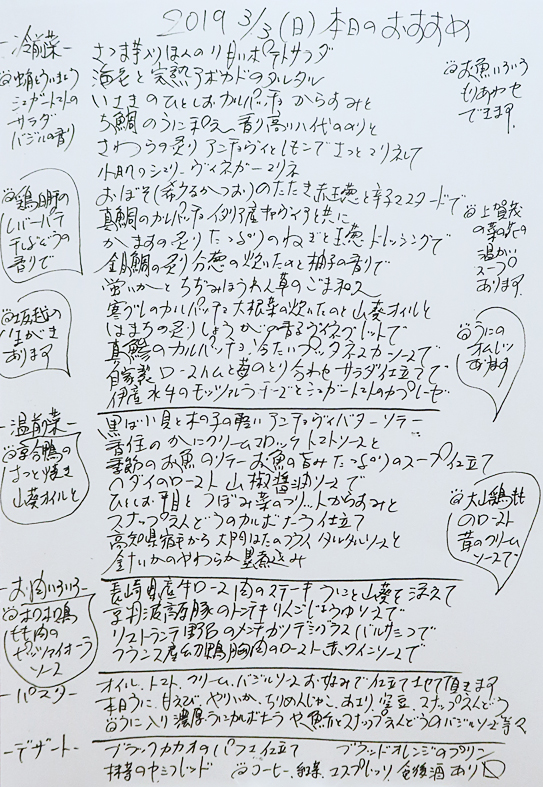 2019 3/3(日)本日のおすすめ
-冷前菜-
さつま芋入りほんのり甘いポテトサラダ
海老と完熟アボカドのタルタル
いさきのひとしおカルパッチョ からすみと
ち鯛のうに 香り高い八代ののりと
さわらの炙り アンチョヴィとレモンでさっとマリネして
小肌のシェリーヴィネガーマリネ
おばそ(希少るかつお)のたたき 葱と辛子マスタードで
真鯛のカルパッチョ 産キャヴィアと共に
かますの炙り たっぷりのねぎと葱ドレッシングで
金目鯛の炙り の炊いたのと柚子の香りで
蛍いかとちぢみほうれん草のごま和え
寒ブリのカルパッチョ 大根菜の炊いたのと山葵オイルと
はまちの炙り しょうがの香るヴィネグレットで
真鯵のカルパッチョ 冷たいプッタネスカソースで
自家製ローストハムと苺のとり合わせ サラダ仕立てで
伊産水牛のモッツァレラチーズとシュガートマトのカプレーゼ
蛸と
シュガートマトの
サラダ
バジルの香り
鶏肝の
レバーパテ
干ぶどうの
香りで
坂越の
生かき
あります
お魚いろいろ
もりあわせ
できます。
上賀茂
の菜の花の
温かい
スープ
あります
うにの
オムレツ
あります
-温前菜-
黒ばい貝と木の子の軽いアンチョヴィバターソテー
香住のかにクリームコロッケ トマトソースと
季節のお魚のソテー お魚の旨みたっぷりのスープ仕立て
ヘダイのロースト 山椒醤油ソースで
ひとしお平目とつぼみ菜のフリット からすみと
スナップえんどうのカルボナーラ仕立て
高知県宿毛から 大門はたのフライ タルタルソースと
金すいかのやわらか墨煮込み
合鴨の
さっと焼き
山葵オイルと
大山鶏もも
のロースト
昔のクリーム
ソースで
-お肉いろいろ-
長崎県産牛ロース肉のステーキ うにと山葵を添えて
京丹波高原豚のトンテキ りんごじょうゆソースで
リストランテ野呂のメンチカツ デミグラス バルサミコで
フランス産 鴨胸肉のロースト 赤ワインソースで
もも肉の
ピッツァイオーラ
ソース
-パスタ-
オイル、トマト、クリーム、バジルソース お好みで仕立てさせて頂きます
本日うに、甘えび、やりいか、ちりめんじゃこ、あさり、空豆、スナップえんどう
うに入り濃厚うにカルボナーラや魚介とスナップえんどうのバジルソース等々
-デザート-
ブラックカカオのパフェ仕立て ブラッドオレンジのプリン
抹茶のセミフレッド コーヒー、紅茶、エスプレッソ、食後酒あり